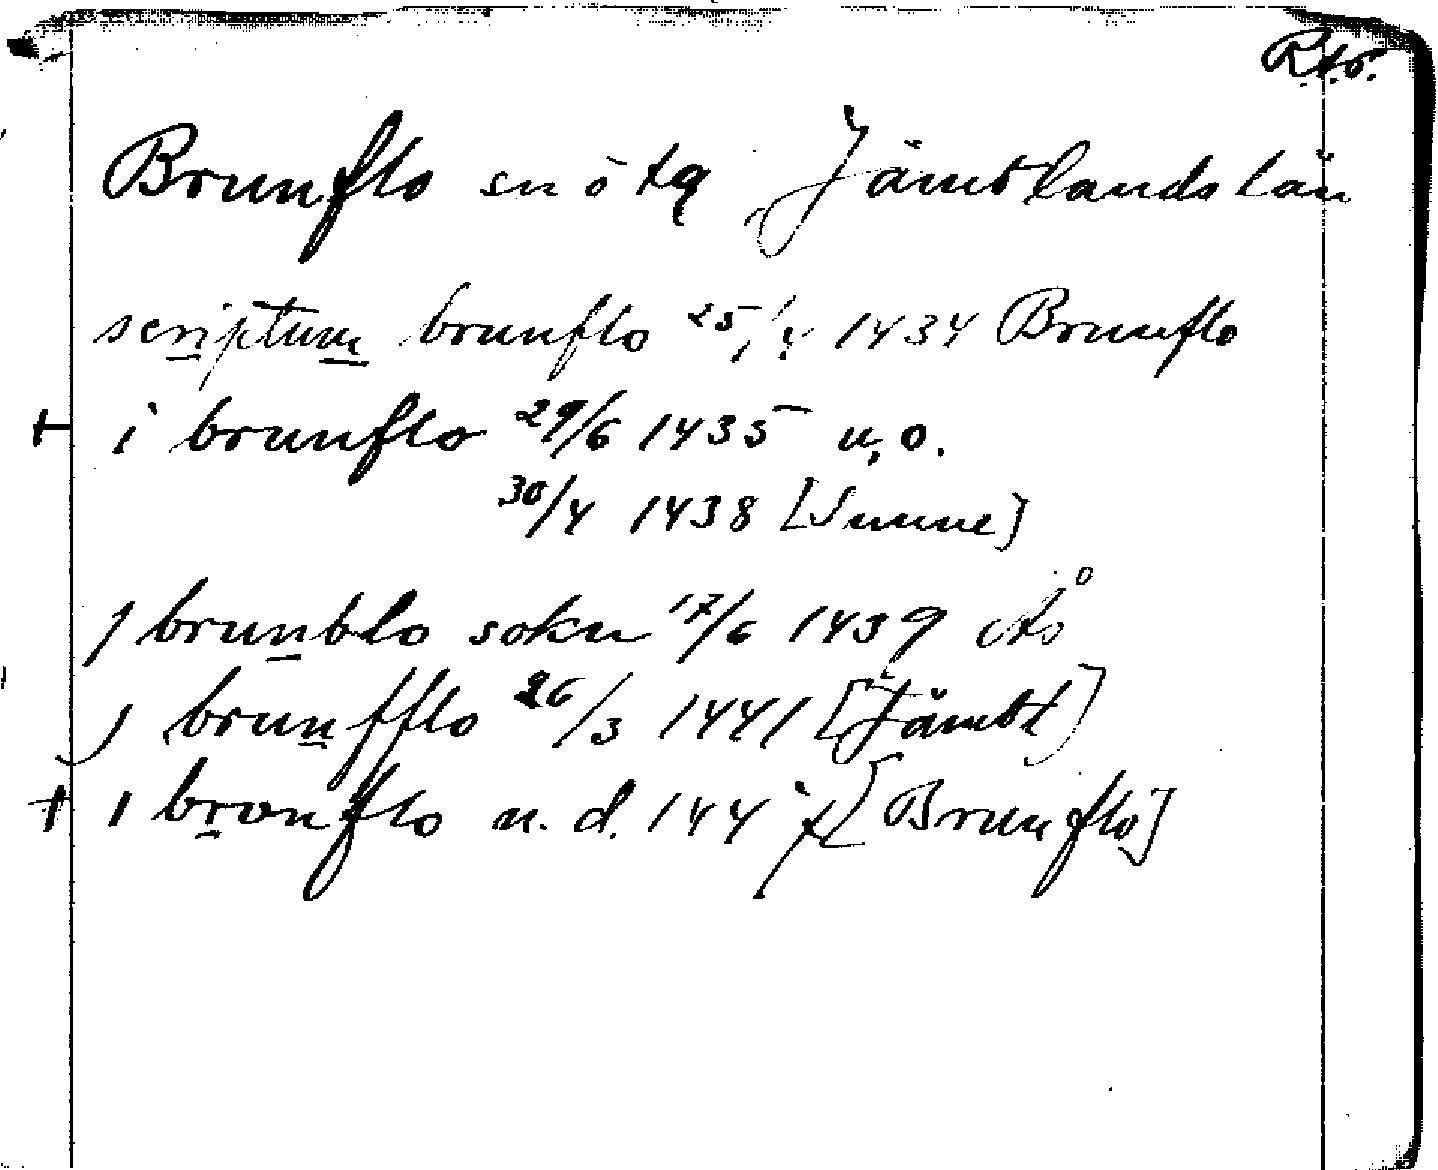 R.t.o.
Brunflo sn ö tg, Jämtlands län
scriptum brunflo 25/4 1434 Brunflo
+ i brunflo 29/6 1435 u.o.
30/4 1438 [Sunne]
j brunblo sokn 17/6 1439 Ås
j brunfflo 26/3 1441 [Jämtl]
+ i bronflo u.d. 144 [Brunflo]